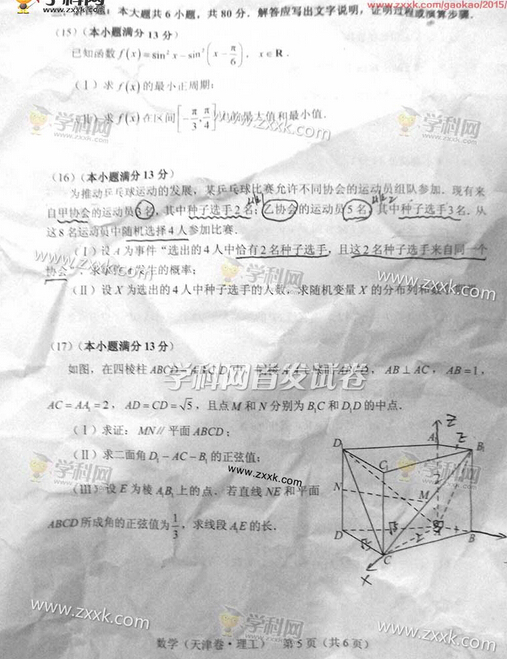 学科网
www.zxxk.com/gaokao/2015/
本大题共 6 小题，共 80 分．解答应写出文字说明，证明过程或演算步骤．
(15)（本小题满分 13 分）
已知函数 f(x) = sin² x − sin² (x − π/6)，x ∈ R．
(Ⅰ) 求 f(x) 的最小正周期；
(Ⅱ) 求 f(x) 在区间 [−π/3, π/4] 最大值和最小值．
学科网
www.zxxk.com
(16)（本小题满分 13 分）
为推动乒乓球运动的发展，某乒乓球比赛允许不同协会的运动员组队参加．现有来
自甲协会的运动员3名，其中种子选手2名；乙协会的运动员5名，其中种子选手3名．从
这 8 名运动员中随机选择 4 人参加比赛．
(Ⅰ) 设 A 为事件“选出的 4 人中恰有 2 名种子选手，且这 2 名种子选手来自同一个
协会”，求事件 A 发生的概率；
(Ⅱ) 设 X 为选出的 4 人中种子选手的人数，求随机变量 X 的分布列和数
www.zxxk.com
(17)（本小题满分 13 分）
学科网首发试卷
如图，在四棱柱 ABCD AB ⊥ AC，AB = 1，
AC = AA₁ = 2，AD = CD = √5，且点 M 和 N 分别为 B₁C 和 D₁D 的中点．
(Ⅰ) 求证：MN // 平面 ABCD；
(Ⅱ) 求二面角 D₁ − AC − B₁ 的正弦值；
www.zxxk.com
(Ⅲ) 设 E 为棱 A₁B₁ 上的点．若直线 NE 和平面
ABCD 所成角的正弦值为 1/3，求线段 A₁E 的长．
Z
D₁ A₁ E B₁
C₁
N M
√5 2
D A B
√5
C
X
学科网
www.zxxk.com
数学（天津卷·理工） 第 5 页（共 6 页）